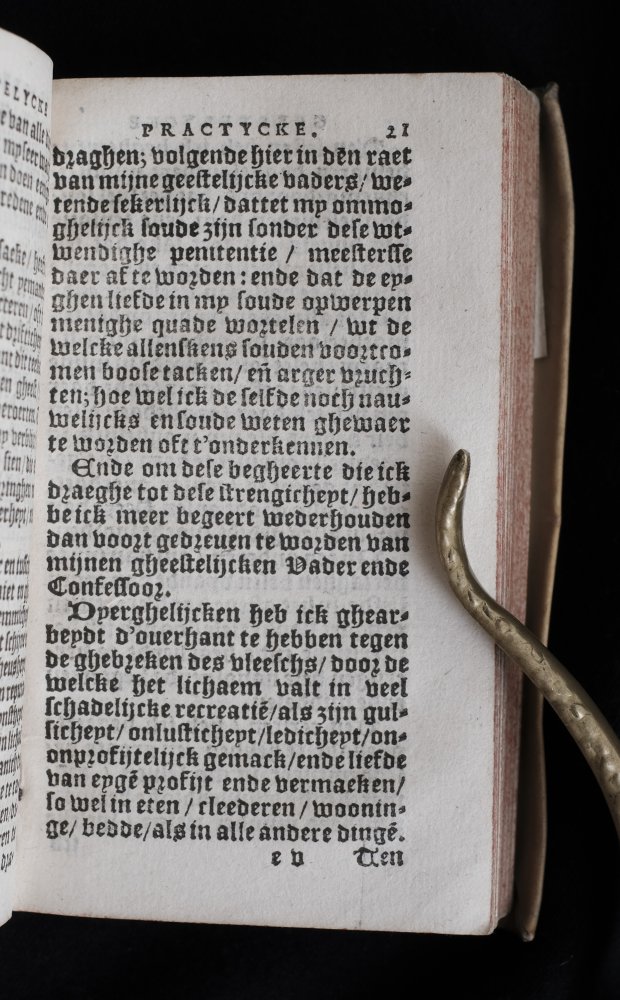 PRACTYCKE. 21
draghen; volgende hier in dēn raet
van mijne geestelijcke vaders/ we-
tende sekerlijck/ dattet my ommo-
ghelijck soude zijn sonder dese wt-
wendighe penitentie / meestersse
daer af te worden: ende dat de ey-
ghen liefde in my soude opwerpen
menighe quade wortelen / wt de
welcke allenskens souden voortco-
men boose tacken/ eñ arger vruch-
ten; hoe wel ick de selfde noch nau-
welijcks en soude weten ghewaer
te worden oft t'onderkennen.
Ende om dese begheerte die ick
draeghe tot dese strengicheyt/ heb-
be ick meer begeert wederhouden
dan voort gedreuen te worden van
mijnen gheestelijcken Vader ende
Confessoor.
Dyerghelijcken heb ick ghear-
beydt d'ouerhant te hebben tegen
de ghebreken des vleeschs/ door de
welcke het lichaem valt in veel
schadelijcke recreatiē/ als zijn gul-
sicheyt/ onlusticheyt/ ledicheyt/ on-
onprofijtelijck gemack/ ende liefde
van eygē profijt ende vermaeken/
so wel in eten / cleederen / woonin-
ge/ bedde/ als in alle andere dingē.
e v Ten